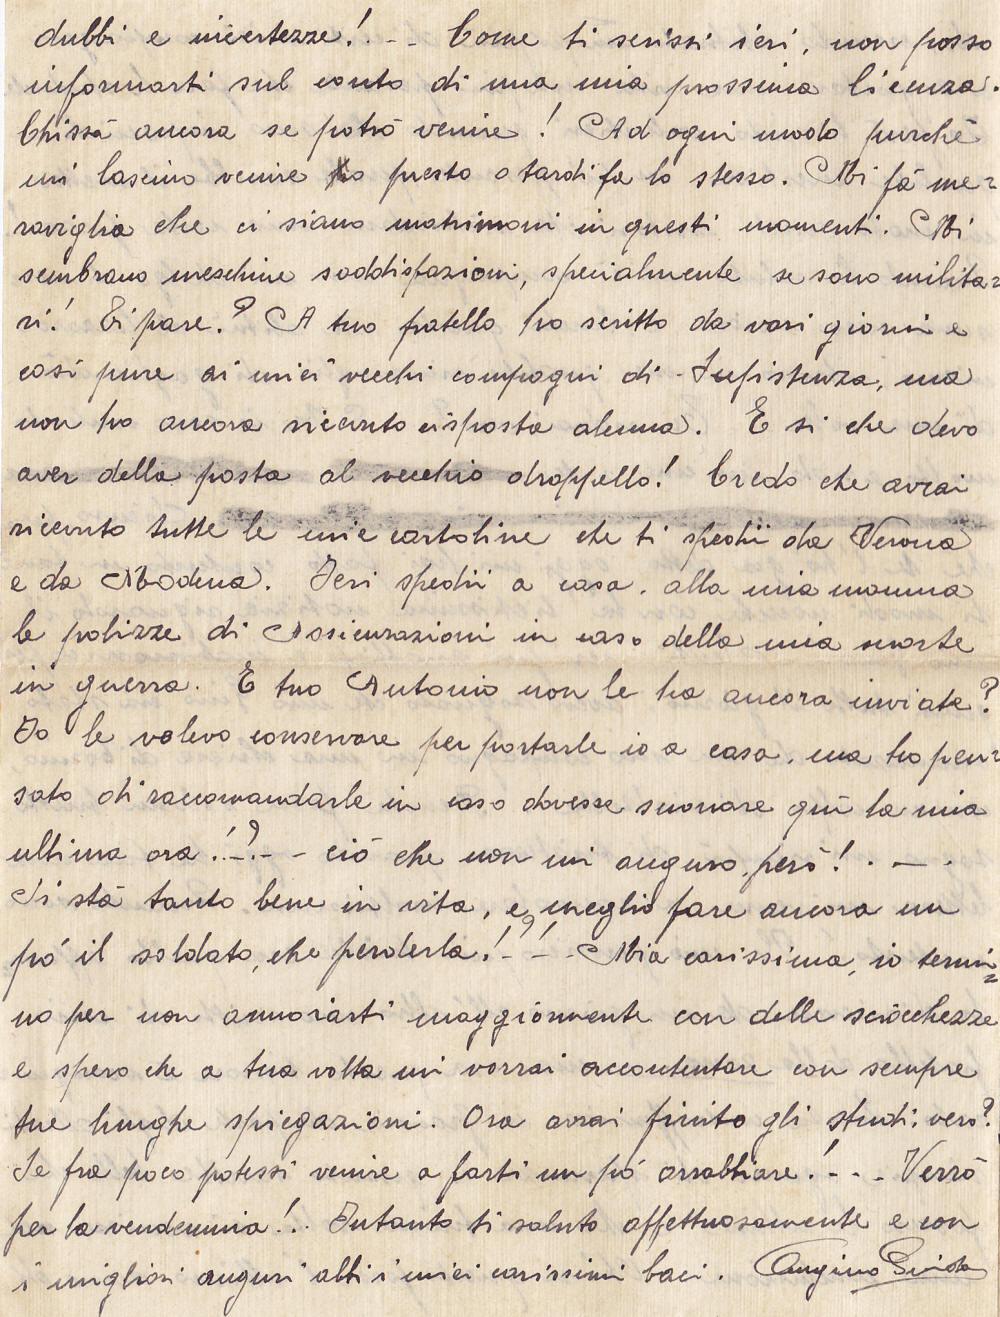 dubbi e incertezze!.-- Come ti scrissi ieri, non posso
informarti sul conto di una mia prossima licenza.
Chissà ancora se potrò venire! Ad ogni modo purchè
mi lascino venire o presto o tardi fa lo stesso. Mi fà me=
raviglia che ci siano matrimoni in questi momenti. Mi
sembrano meschine soddisfazioni, specialmente se sono milita=
ri! Ti pare.? A tuo fratello ho scritto da vari giorni e
così pure ai miei vecchi compagni di
non ho ancora ricevuto risposta alcuna. E si che devo
aver della posta al vecchio drappello! Credo che avrai
ricevuto tutte le mie cartoline che ti spedii da Verona
e da Modena. Ieri spedii a casa, alla mia mamma
le polizze di Assicurazioni in caso della mia morte
in guerra. E tuo Antonio non le ha ancora inviate?
Io le volevo conservare per portarle io a casa, ma ho pen=
sato di raccomandarle in caso dovesse suonare quì la mia
ultima ora!.?.-- ciò che non mi auguro, però!.-.
Si stà tanto bene in vita, e meglio fare ancora un
pó il soldato, che perderla!-?!- Mia carissima, io termi=
no per non annoiarti maggiormente con delle sciocchezze
e spero che a tua volta mi vorrai accontentare con sempre
tue lunghe spiegazioni. Ora avrai finito gli studi, vero?
Se fra poco potessi venire a farti un pó arrabbiare!.-- Verrò
per la vendemmia!.. Intanto ti saluto affettuosamente e con
i migliori auguri abbi i miei carissimi baci.